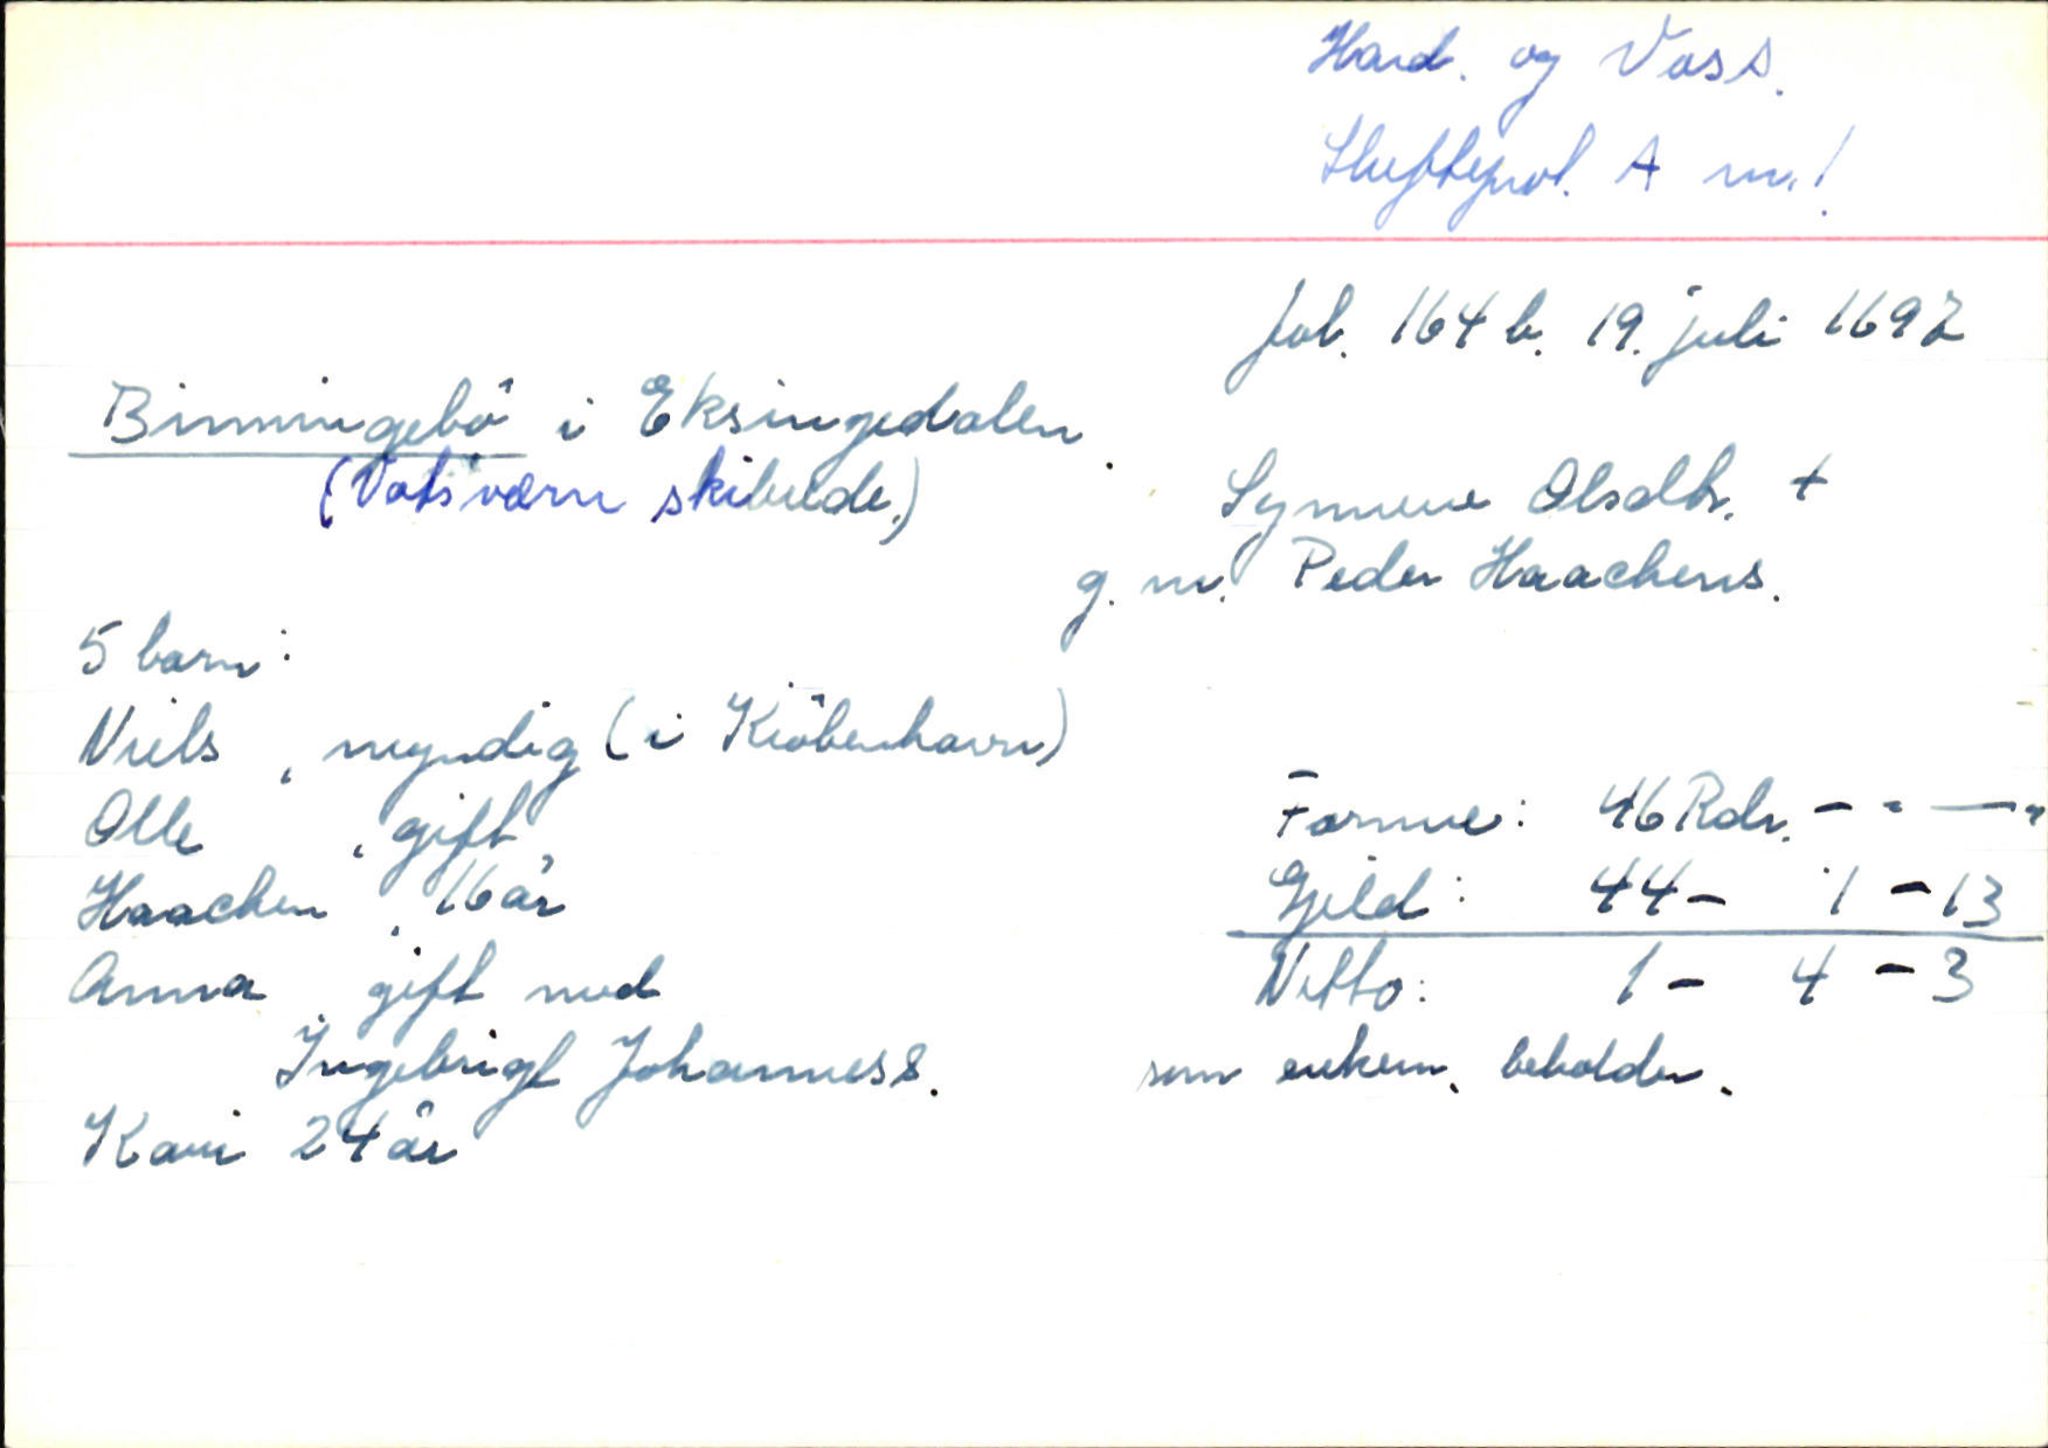 Hard. og Voss.
Skifteprot. A nr. 1
fol. 164 b. 19. juli 1692
Binningebö i Eksingedalen.
(Vatsværn skibrede.)
Synneve Olsdtr. +
g. m. Peder Haachens.
5 barn:
Niels, myndig (i Kiöbenhavn)
Olle, gift,
Haachen, 16 år
Anna, gift med
Ingebrigt Johanness.
Kari 24 år
Formue: 46 Rdr. - " - "
Gjeld: 44 - 1 - 13
Netto: 1 - 4 - 3
som enkem. beholder.